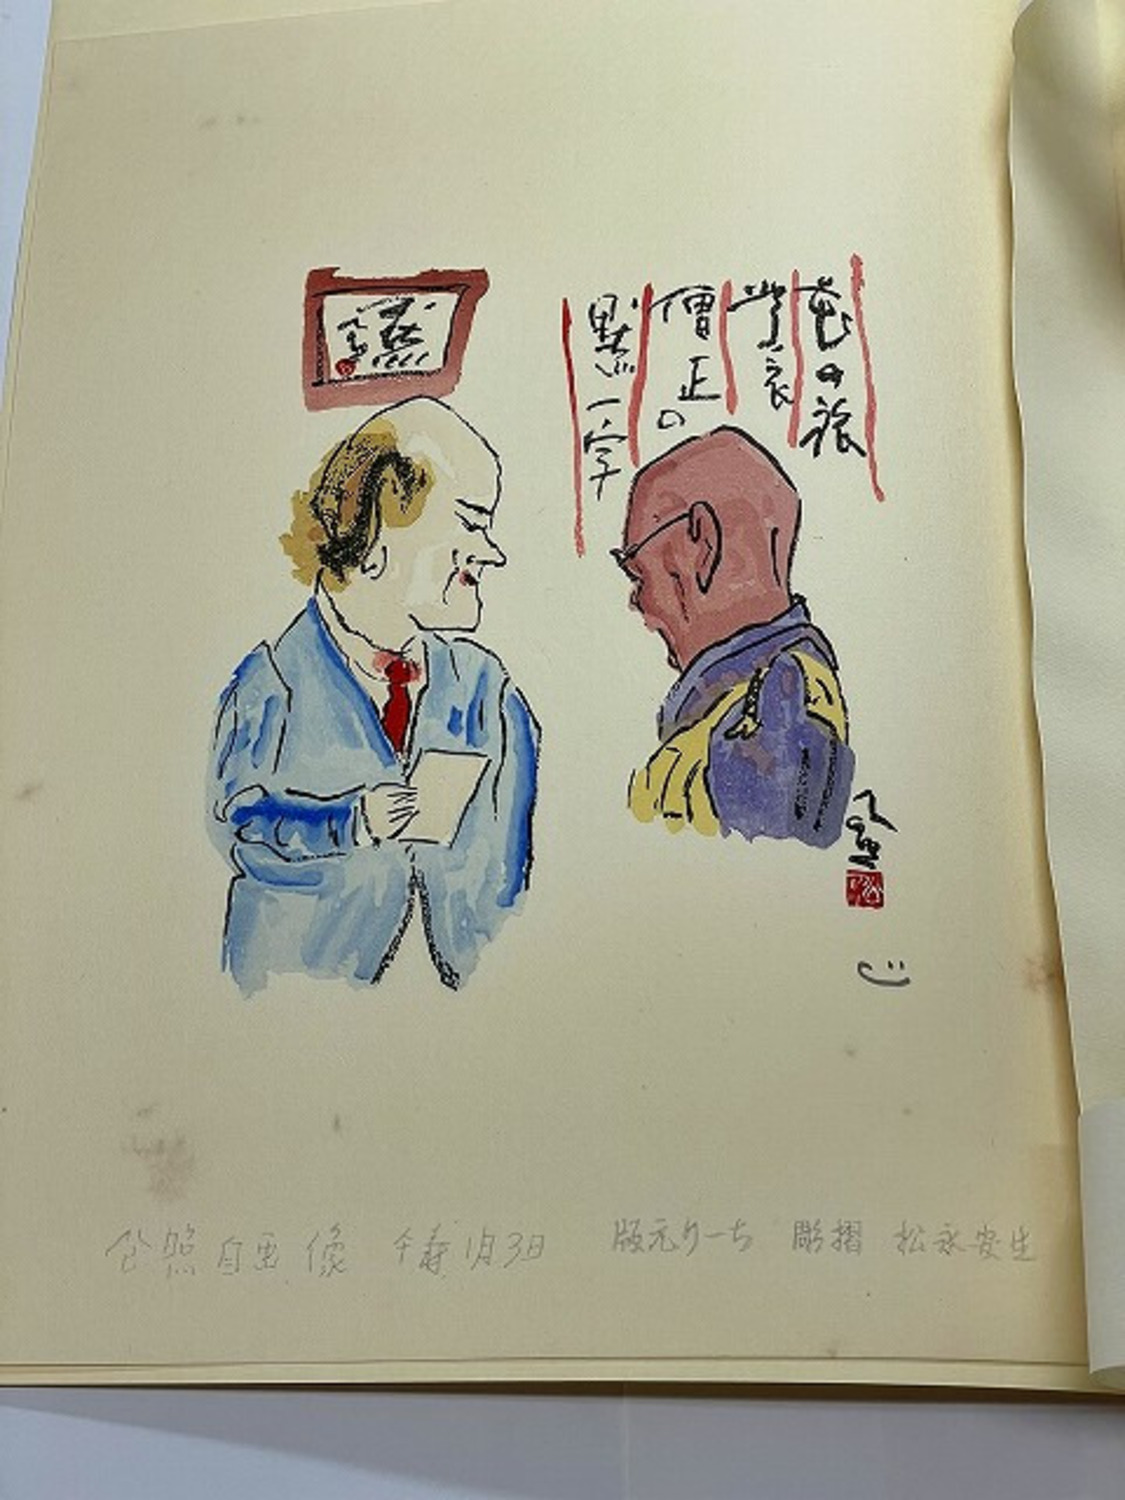 黙
花の旅
紫衣
僧正の
黙一字
公照
公照自画像 千寿1月3日 版元りーち 彫摺 松永安生